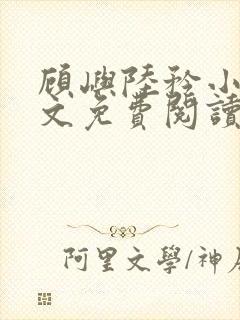 顾嶼陸矜小
文免費閱讀
阿里文學/神